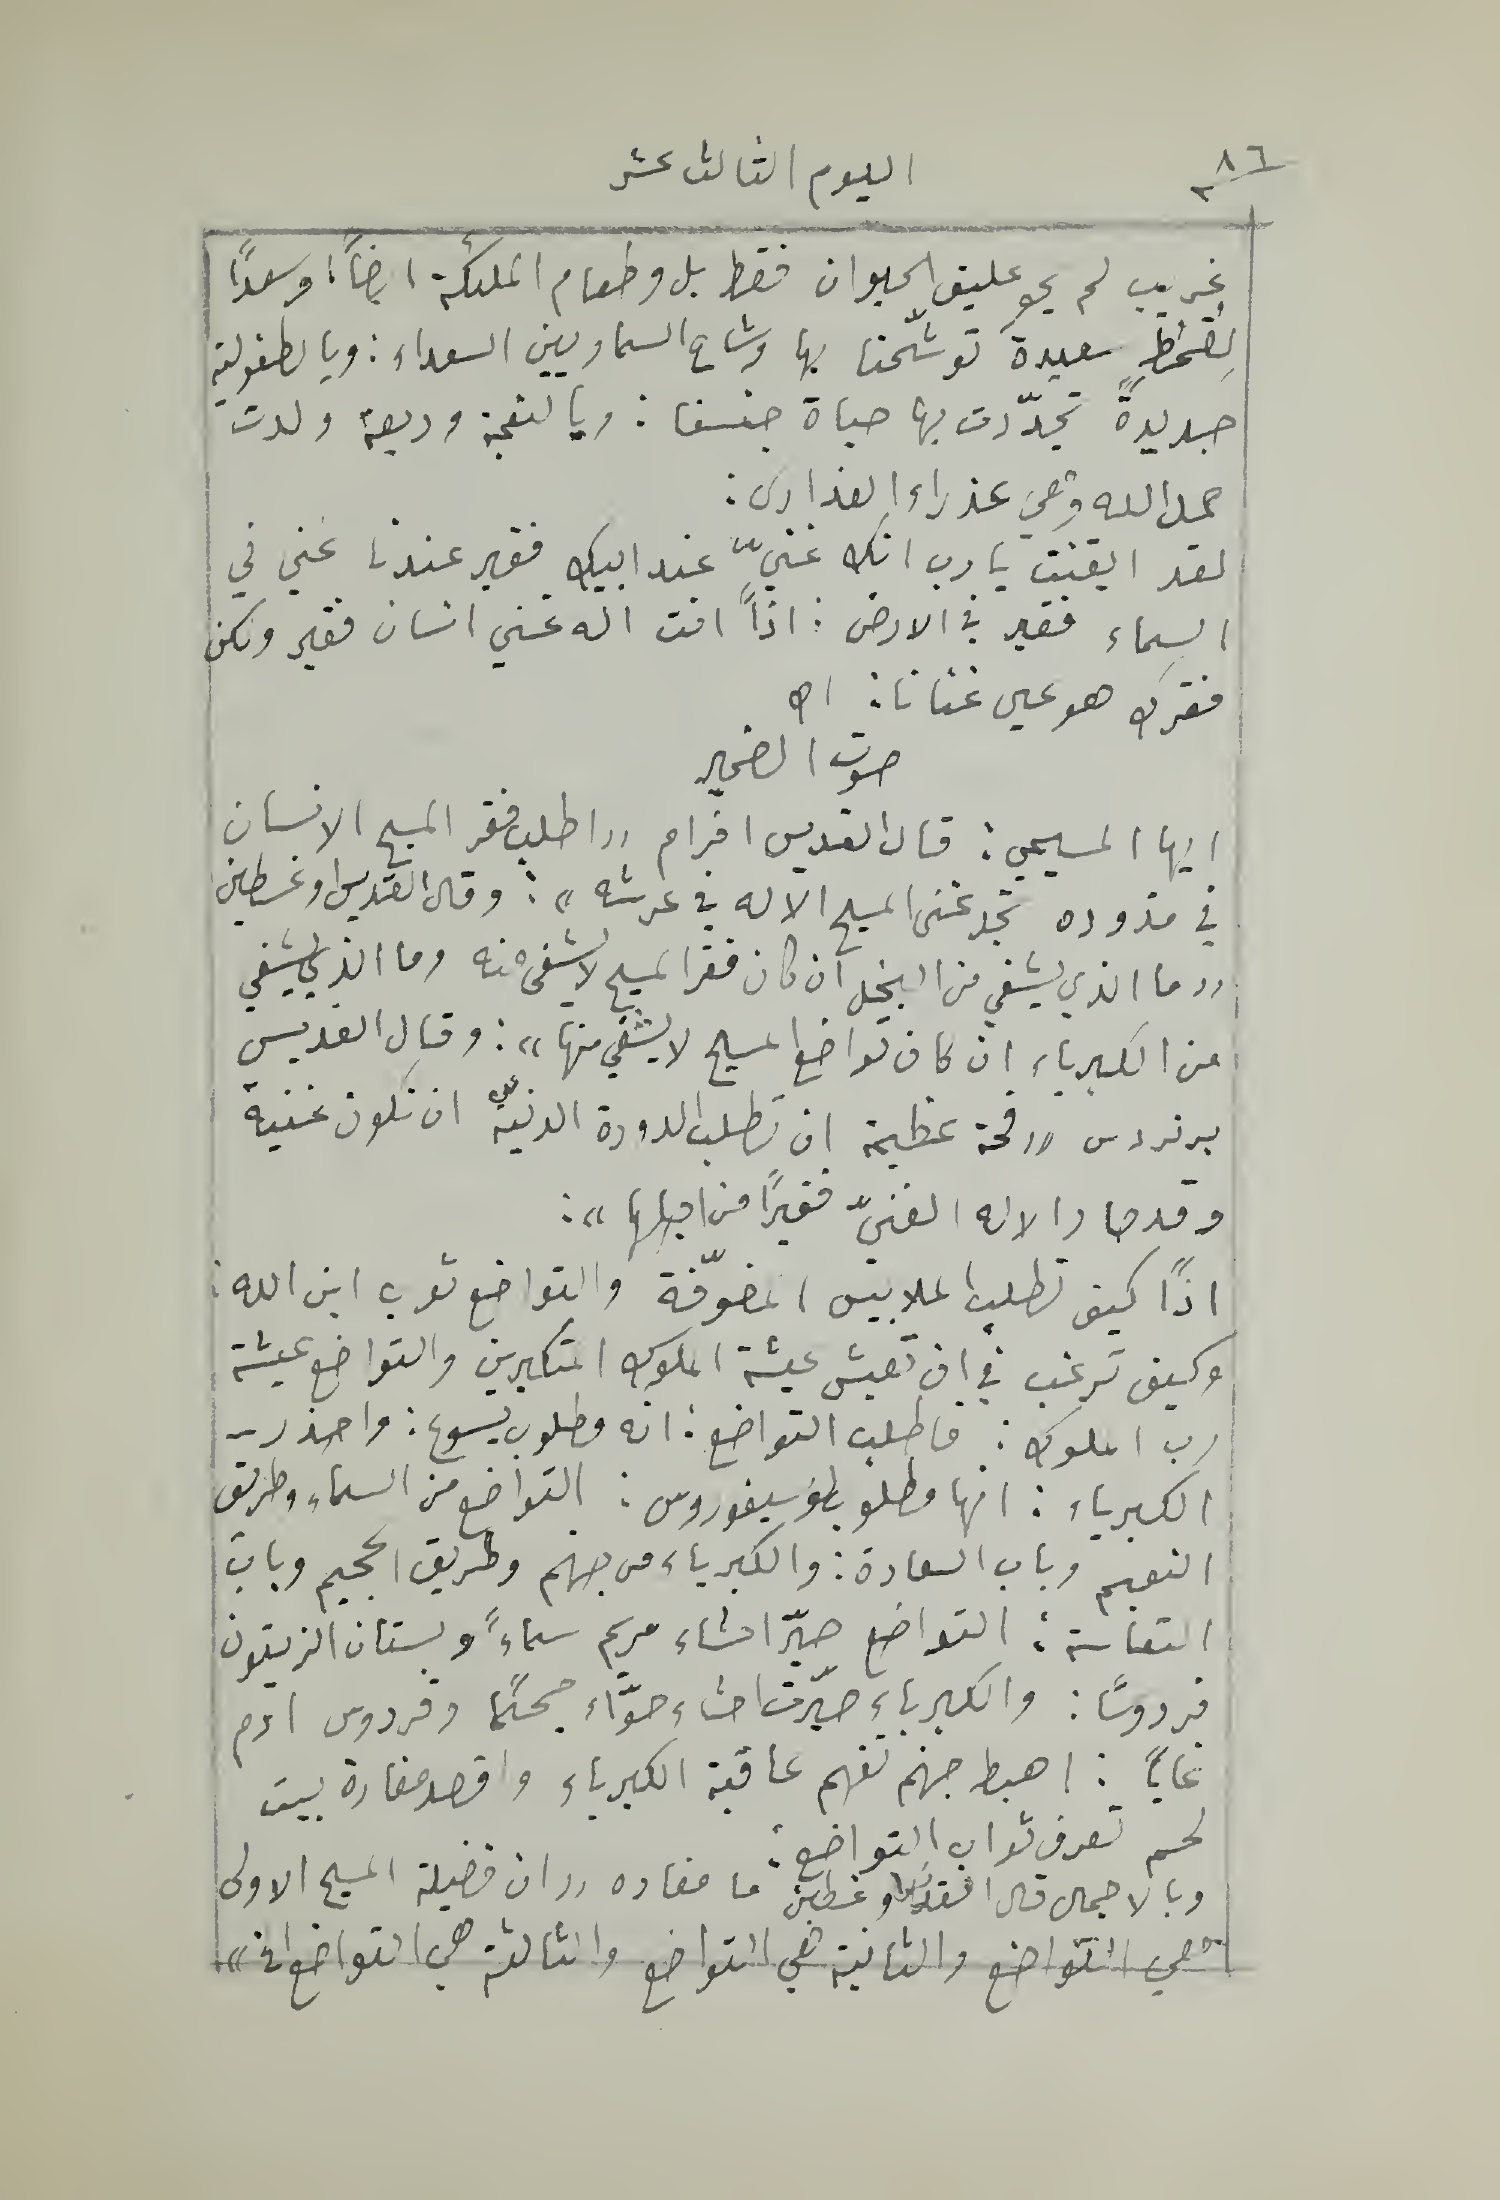 ٨٦
اليوم الثالث عشر
غريب لم يحوِ عليق الحيوان فقط بل وطعام الملئكة ايضاً: وسعدًا
لقمطٍ سعيدة توشّحنا بها وشاح السماويين السعداء: ويا لطفولية
جديدةً تجدّدت بها حياة جنسنا: ويا لنعجة وديعة ولدت
حمل الله وهي عذراء العذارى:
لقد ايقنت يا رب انك غنيّ عند ابيك فقير عندنا غني في
السماء فقير في الارض: اذاً انت اله غني انسان فقير ولكن
فقرك هو عين غنانا: اه
صوت الضمير
ايها المسيحي: قال القديس افرام «اطلب فقر المسيح الانسان
في مذوده تجد غنى المسيح الاله في عرشه»: وقال القديس اوغسطين
«ما الذي يشفي من البخل ان كان فقر المسيح لا يشفى منه وما الذي يشفي
من الكبرياء ان كان تواضع المسيح لا يشفي منها»: وقال القديس
برنردس «قحة عظيمة ان تطلب الدودة الدنيّة ان تكون غنية
وقد صار الاله الغنيّ فقيرًا من اجلها»:
اذًا كيف تطلب الملابيس المفوّفة والتواضع ثوب ابن الله:
وكيف ترغب في ان تعيش عيشة الملوك المتكبرين والتواضع عيشة
رب الملوك: فاطلب التواضع: انه مطلوب يسوع: واحذر
الكبرياء: انها مطلوب لوسيفوروس: التواضع من السماء وطريق
النعيم وباب السعادة: والكبرياء من جهنم وطريق الجحيم وباب
التعاسة: التواضع صيّر احشاء مريم سماءً وبستان الزيتون
فردوسًا: والكبرياء صيّرت احشاء حوّاء جحيمًا وفردوس ادم
غابًا: اهبط جهنم تفهم عاقبة الكبرياء واقصد مغارة بيت
لحم تعرف ثواب التواضع:
وبالاجمال قال القديس اوغسطين ما مفاده «ان فضيلة المسيح الاولى
هي التواضع والثانية هي التواضع والثالثة هي التواضع الخ»